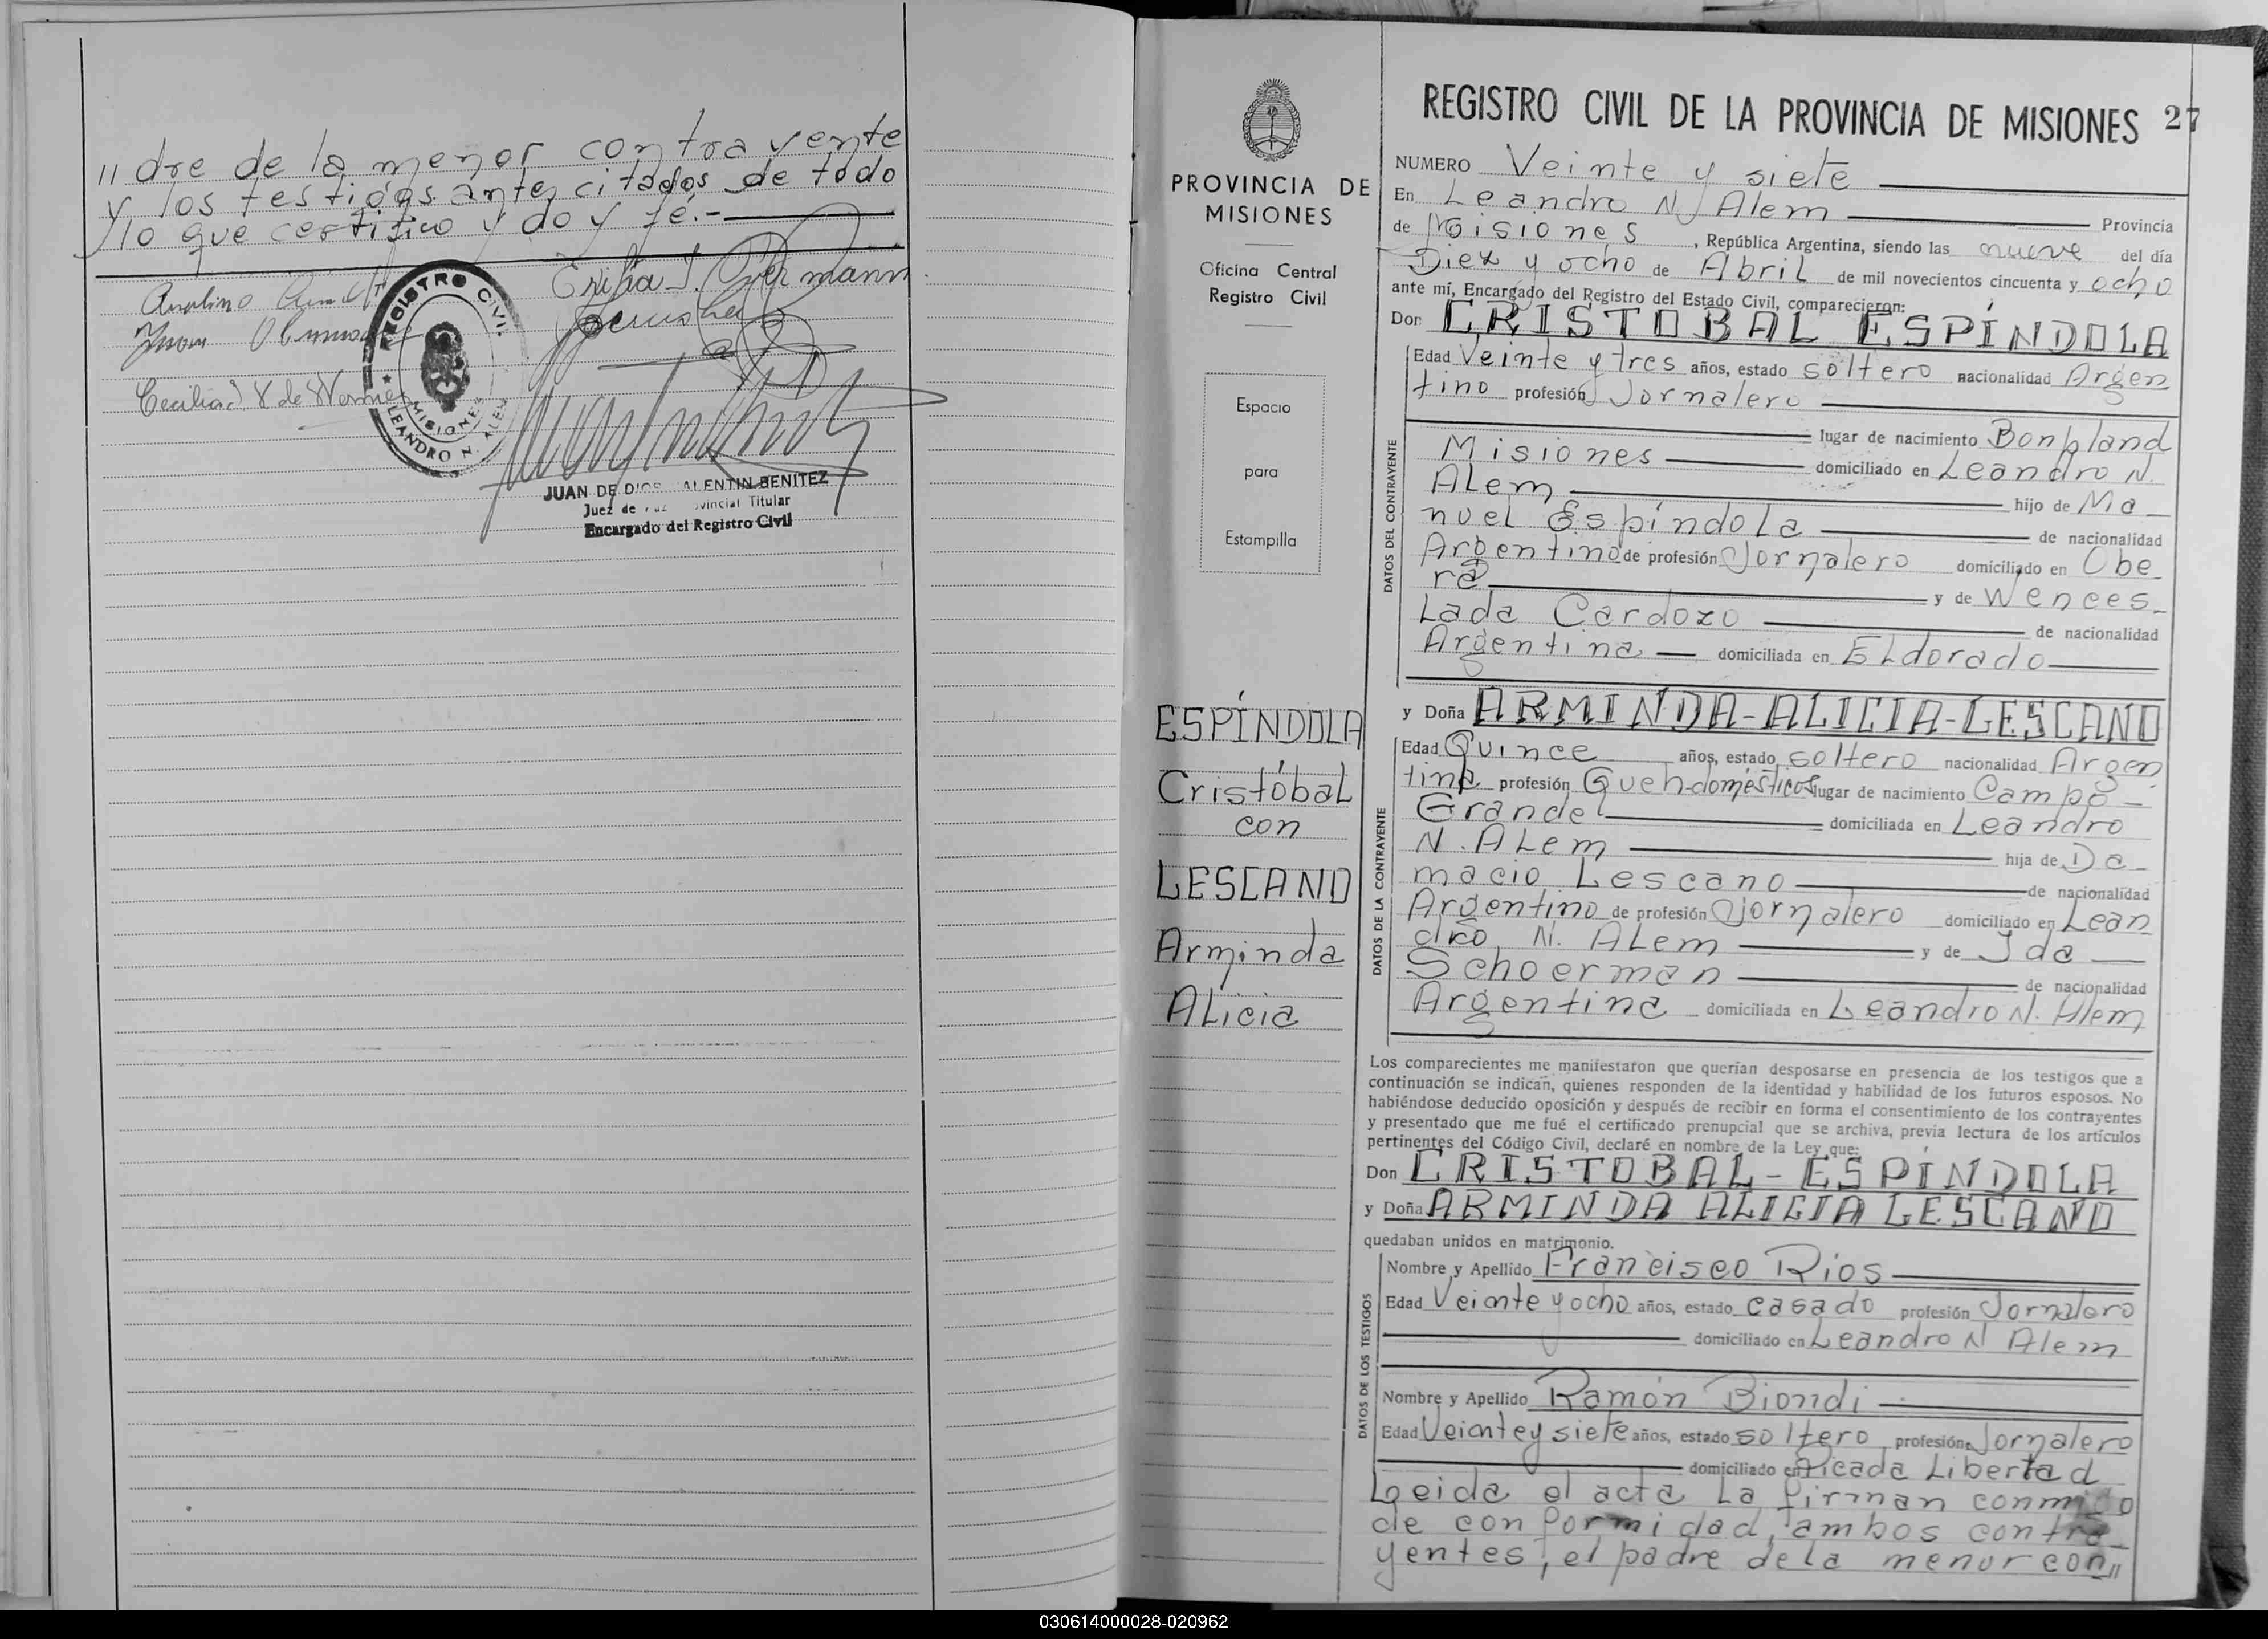 ॥dre de la menor contrayente
y los testigos antes citados de todo
lo que certifico y do y fé.-
REGISTRO CIVIL
MISIONES
LEANDRO N. ALEM
JUAN DE DIOS ALENTIN BENITEZ
Juez de Paz ovincial Titular
Encargado del Registro Civil
PROVINCIA DE
MISIONES
Oficina Central
Registro Civil
Espacio
para
Estampilla
ESPÍNDOLA
Cristóbal
con
LESCANO
Arminda
Alicia
REGISTRO CIVIL DE LA PROVINCIA DE MISIONES 27
NUMERO Veinte y siete
En Leandro N. Alem Provincia
de Misiones, República Argentina, siendo las nueve del día
Diez y ocho de Abril de mil novecientos cincuenta y ocho
ante mí, Encargado del Registro del Estado Civil, comparecieron:
Don CRISTOBAL ESPÍNDOLA
DATOS DEL CONTRAYENTE
Edad Veinte y tres años, estado soltero nacionalidad Argen
tino profesión Jornalero
lugar de nacimiento Bonpland
Misiones domiciliado en Leandro N.
Alem hijo de Ma_
nuel Espíndola de nacionalidad
Argentino de profesión Jornalero domiciliado en Obe_
rá y de Wences_
lada Cardozo de nacionalidad
Argentina domiciliada en Eldorado
y Doña ARMINDA-ALICIA-LESCANO
DATOS DE LA CONTRAYENTE
Edad Quince años, estado soltero nacionalidad Argen
tina profesión Queh-domésticos lugar de nacimiento Campo -
Grande domiciliada en Leandro
N. Alem hija de Da-
macio Lescano de nacionalidad
Argentino de profesión jornalero domiciliado en Lean
dro N. Alem y de Ida
Schoerman de nacionalidad
Argentina domiciliada en Leandro N. Alem
Los comparecientes me manifestaron que querían desposarse en presencia de los testigos que a
continuación se indican, quienes responden de la identidad y habilidad de los futuros esposos. No
habiéndose deducido oposición y después de recibir en forma el consentimiento de los contrayentes
y presentado que me fué el certificado prenupcial que se archiva, previa lectura de los artículos
pertinentes del Código Civil, declaré en nombre de la Ley que:
Don CRISTOBAL-ESPÍNDOLA
y Doña ARMINDA ALICIA LESCANO
quedaban unidos en matrimonio.
DATOS DE LOS TESTIGOS
Nombre y Apellido Francisco Rios
Edad Veinte y ocho años, estado casado profesión Jornalero
domiciliado en Leandro N Alem
Nombre y Apellido Ramón Biondi
Edad Veinte y siete años, estado soltero profesión Jornalero
domiciliado en Picada Libertad
Leida el acta la firman conmigo
de conformidad, ambos contra_
yentes, el padre de la menor con॥
030614000028-020962